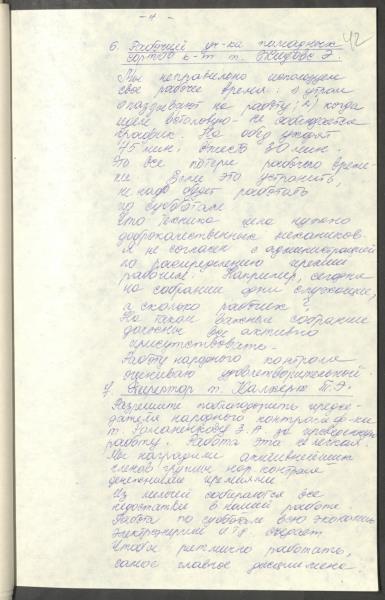 - 4 -
42
6. Рабочий уч-ка помадных
сортов к-т т.
Мы неправильно используем
свое рабочее время: 1) утром
опаздывают на работу; 2) когда
идем в столовую - не соблюдается
график. На обед уходят
45 мин. вместо 30 мин.
Это все потери рабочего време-
ни. Если это устранить,
не надо будет работать
по субботам
Что техника цела нужно
доброкачественных механиков.
Я не согласен с администрацией
по распределению премий
рабочим. Например, сегодня
на собрании одни служащие,
а сколько рабочих?
На таком важном собрании
должны все активно
присутствовать.
Работу народного контроля
оцениваю удовлетворительной.
7. Директор т. Калжери Т.Э.
Разрешите поблагодарить предсе-
дателя народного контроля ф-ки
т. Романенкову З.А. за проведенную
работу. Работа эта нелегкая.
Мы наградили активнейших
членов группы нар. контроля
денежными премиями
Из мелочей собираются все
недостатки в нашей работе
Работа по субботам всю экономию
электроэнергии и т.д. съедает
Чтобы ритмично работать,
самое главное дисциплина